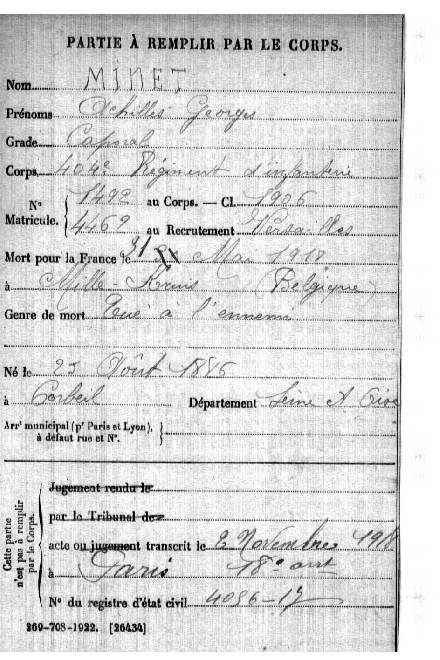 PARTIE À REMPLIR PAR LE CORPS.
Nom MINET
Prénoms Achilles Georges
Grade Caporal
Corps 404e Régiment d'infanterie
N° Matricule. { 1492 au Corps. — Cl. 1906
4462 au Recrutement Versailles
Mort pour la France le 31 Mai 1918
à Mille-Kruis (Belgique)
Genre de mort Tué à l'ennemi
Né le 25 Août 1886
à Corbeil Département Seine et Oise
Arrt municipal (pr Paris et Lyon),
à défaut rue et N°.
Cette partie n'est pas à remplir par le Corps.
Jugement rendu le
par le Tribunal de
acte ou jugement transcrit le 2 Novembre 1918
à Paris 18e arrt
N° du registre d'état civil 4086-17
269-708-1922. [26434]